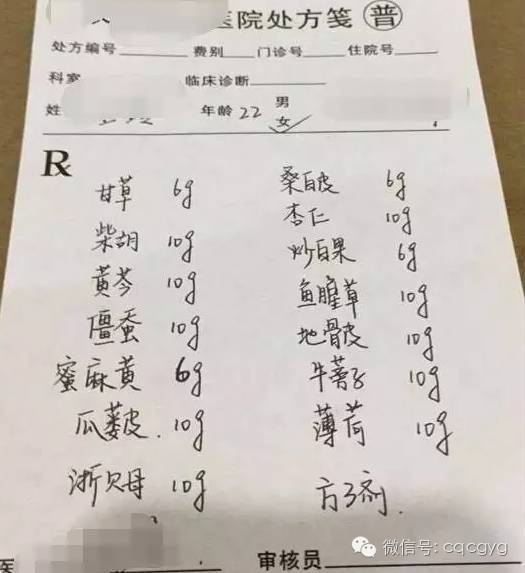 医院处方笺 普
处方编号 费别 门诊号 住院号
科室 临床诊断
姓 年龄 22 男
女
Rx
甘草 6g 桑白皮 6g
柴胡 10g 杏仁 10g
黄芩 10g 炒白果 6g
僵蚕 10g 鱼腥草 10g
蜜麻黄 6g 地骨皮 10g
瓜蒌皮. 10g 牛蒡子 10g
浙贝母 10g 薄荷 10g
医 审核员
微信号: cqcgyg